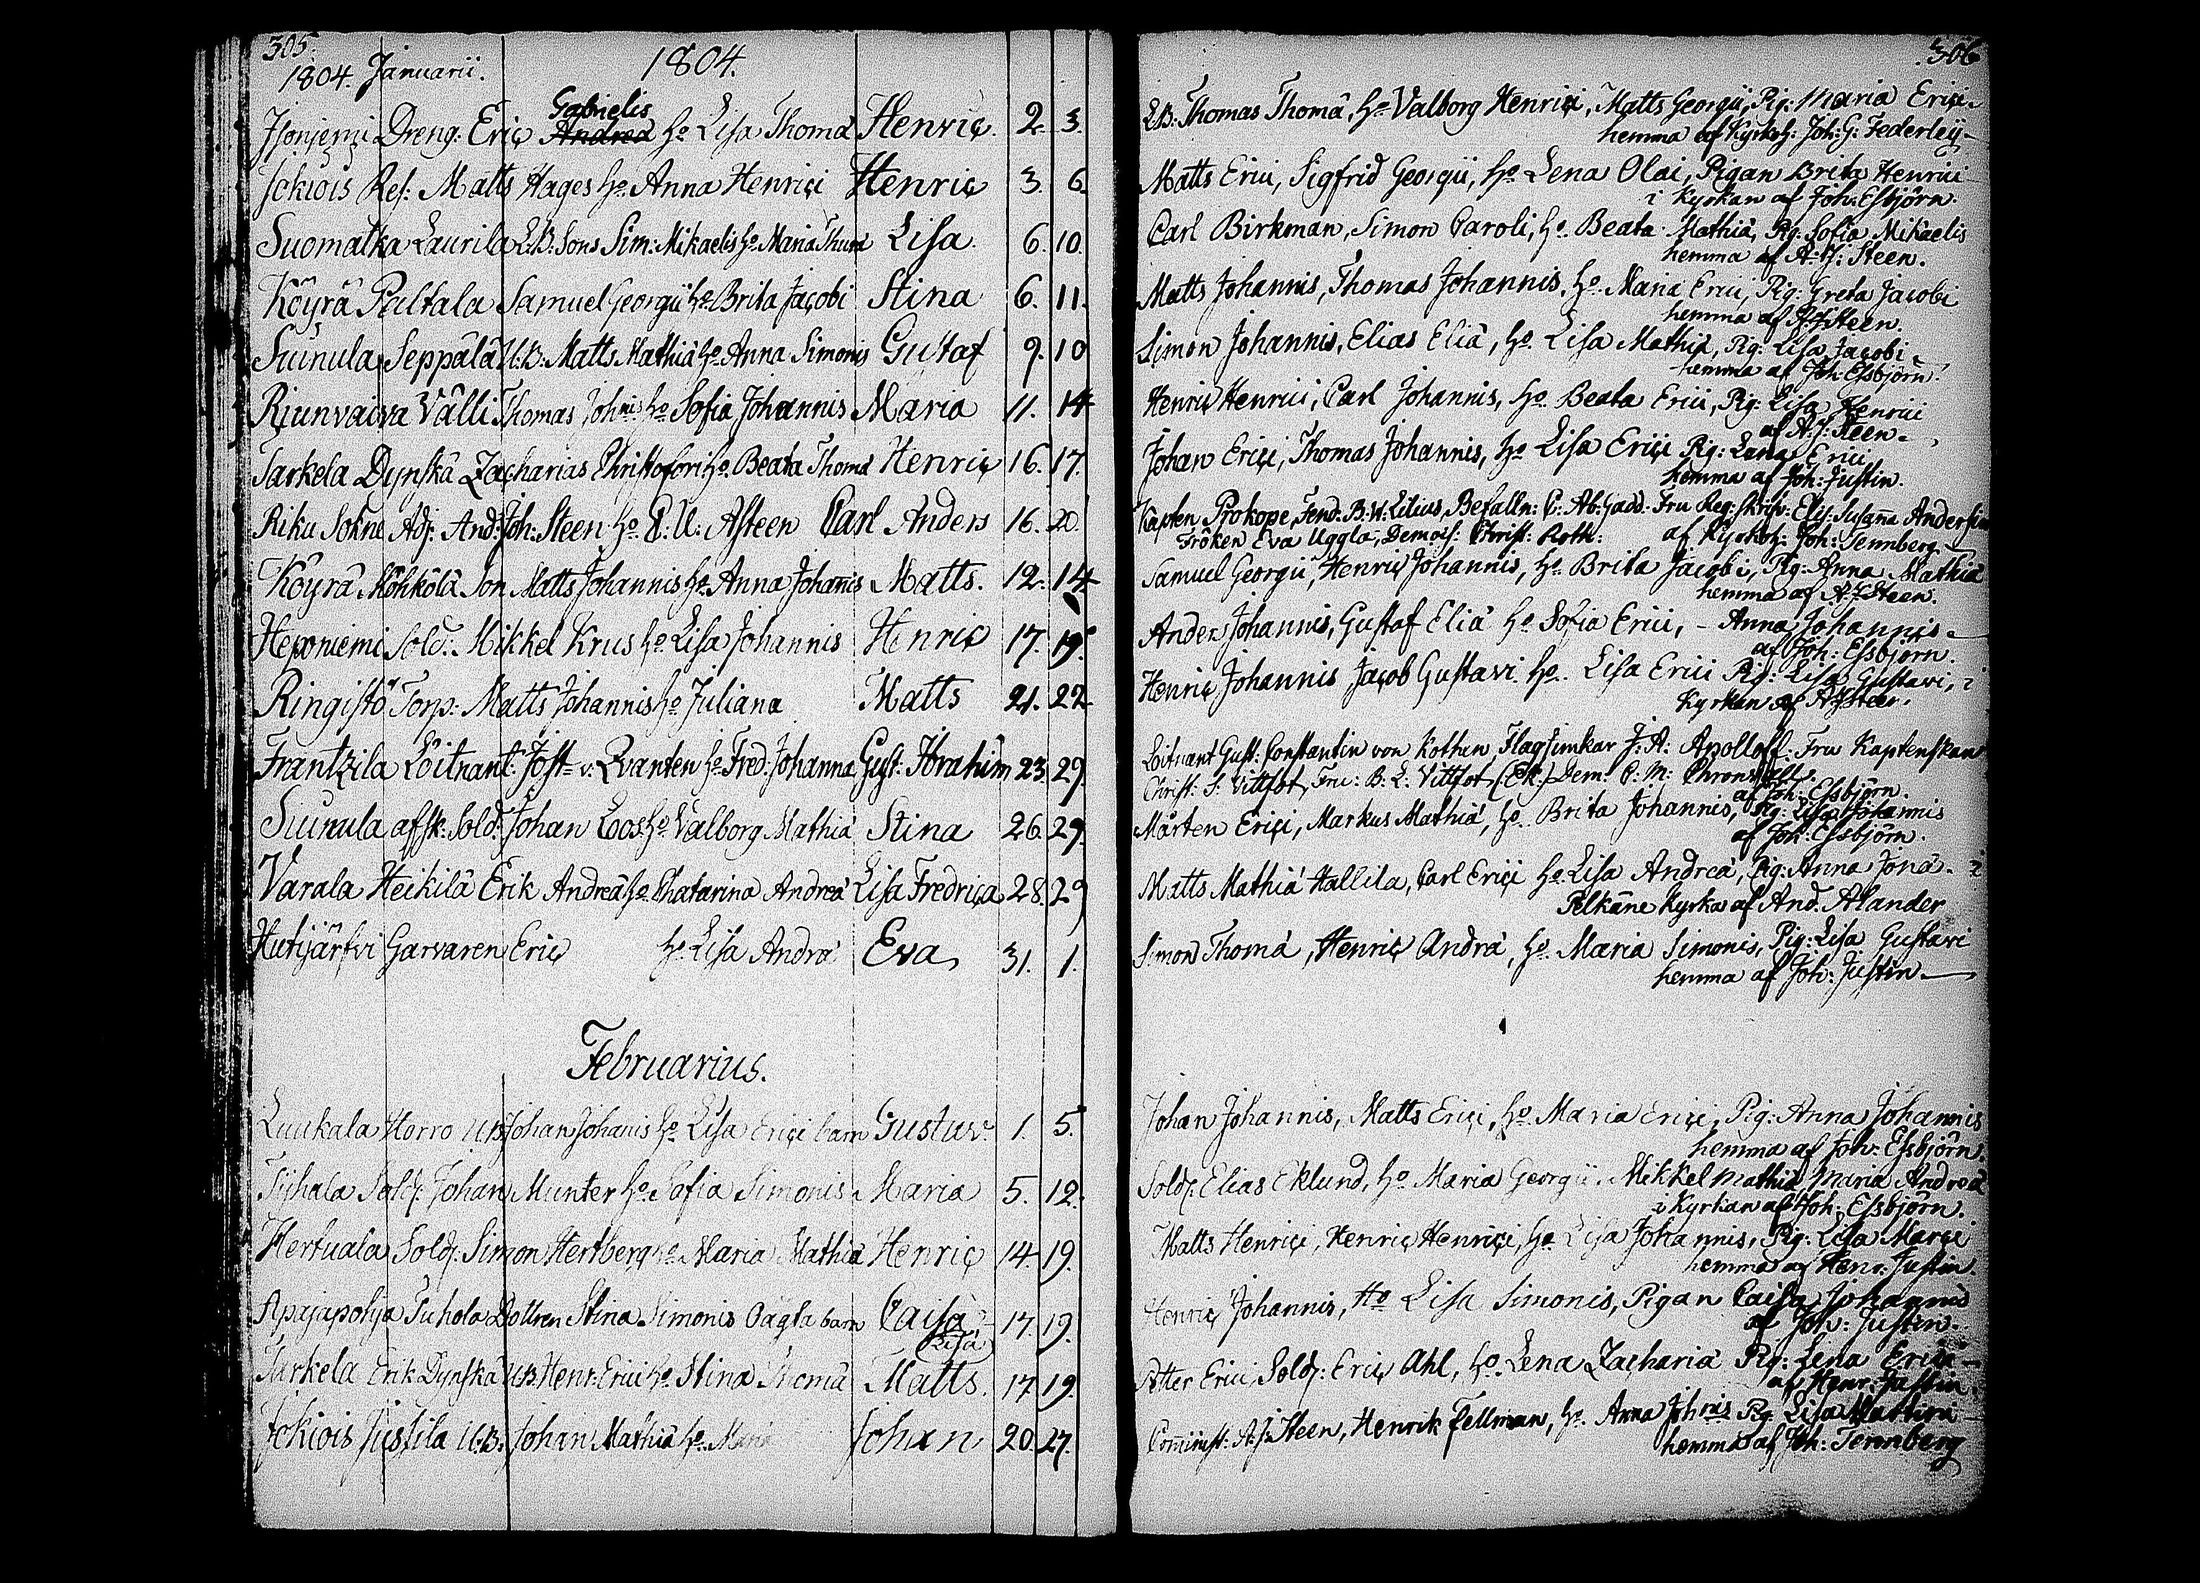 305.
1804. Januarii. 1804.
Gabrielis
Isonjemi Dreng: Eriç Andreä Ho Lisa Thomä Henriç. 2. 3.
Jokiois Res: Matts Hages Ho Anna Henriçi Henriç 3. 6.
Suomatka Laurila L.B: Sons Sim: Mikaelis Ho Maria Thom Lisa. 6. 10.
Köyrä Paltala Samuel Georgii Ho Brita Jaçobi Stina 6. 11.
Suinula Seppälä U:B: Matts Mathiä Ho Anna Simonis Gustaf 9. 10
Riunvaiva Välli Thomas Johnis Ho Sofia Johannis Maria 11. 14
Sarkela Dynskä Zaçharias Christofori Ho Beata Thomä Henriç 16. 17.
Riku Sokne Adj: And: Joh: Steen Ho C. U: Asteen Carl Anders 16. 20.
Köyrä Möhkölä Son Matts Johannis Ho Anna Johanis Matts. 12. 14
Heponiemi Sold: Mikkel Krus Ho Lisa Johannis Henriç 17. 19.
Ringistö Torp: Matts Johannis Ho Juliana Matts 21. 22
Frantzila Löitnant: Jost v: Qvanten Ho Fred: Johanna Gust: Abrahim 23. 29.
Suinula afsk: Sold: Johan Loos Ho Valborg Mathiä Stina 26. 29.
Varala Heikilä Erik Andreä Ho Chatarina Andreä Lisa Fredriça 28. 29
Hutijärfvi Garvaren Eriç Ho Lisa Andrä Eva 31. 1.
Februarius.
Luukala Horro U:B Johan Johanis Ho Lisa Eriçi barn Gustav. 1. 5.
Tijhala Sold: Johan Munter Ho Sofia Simonis Maria 5. 12.
Hertuala Sold: Simon Hertberg Ho Maria Mathiä Henriç 14. 19.
Apajapohja Tuhola Dottren Stina Simonis Oägta barn Caisa 17. 19.
Lisa
Sarkela Erik Dynskä U:B: Henr: Erici Ho Stina Thomä Matts. 17 19.
Jokiois Jussila U:B: Johan Mathiä Ho Maria Johan 20. 27.
306
L:B: Thomas Thomä, Ho Valborg Henriçi, Matts Georgii, Pig: Maria Eriçi
hemma af Kyrkoh: Joh: G: Federley
Matts Erici, Sigfrid Georgii, Ho Lena Olai, Pigan Brita Henrici
i Kyrkan af Joh: Essbjörn.
Carl Birkman, Simon Caroli, Ho Beata Mathiä, Pig: Sofia Mikaelis
hemma af A: J: Steen.
Matts Johannis, Thomas Johannis, Ho Maria Erici, Pig: Greta Jacobi
hemma af A: J: Steen.
Simon Johannis, Elias Eliä, Ho Lisa Mathiä, Pig: Lisa Jaçobi
hemma af Joh: Essbjörn.
Henriç Henrici, Carl Johannis, Ho Beata Erici, Pig: Lisa Henrici
af A: J: Steen.
Johan Eriçi, Thomas Johannis, Ho Lisa Eriçi Pig: Lena Erici
hemma af Joh: Justin.
Kapten Prokope, Fend: B: W: Lilius, Befalln: C: Ab: Gadd. Fru Reg: Skrifv: Elis: Susanna Andersin
Fröken Eva Uggla, Demois: Christ: Roth: af Kyrkoh: Joh: Tennberg
Samuel Georgii, Henriç Johannis, Ho Brita Jacobi, Pig: Anna Mathiä
hemma af A: J: Steen.
Anders Johannis, Gustaf Eliä Ho Sofia Erici, - Anna Johannis
af Joh: Essbjörn.
Henriç Johannis Jaçob Gustavi Ho Lisa Erici Pig: Lisa Gustavi, i
Kyrkan af A: J: Steen.
Löitnant Gust: Constantin von Kothen Flagjunkar J: A: Apolloff: Fru Kaptenskan
Christ: S: Vittfot, Fru: B: L: Vittfot, (Ek:) Dem: C: M: Chronstall:
af Joh: Essbjörn.
Mårten Eriçi, Markus Mathiä, Ho Brita Johannis, Pig: Lisa Johannis
af Joh: Essbjörn.
Matts Mathiä Hallila, Carl Eriçi Ho Lisa Andreä, Pig: Anna Jonä. i
Pelkäne Kyrka af And. Alander
Simon Thomä, Henriç Andrä, Ho Maria Simonis, Pig: Lisa Gustavi
hemma af Joh: Justin
Johan Johannis, Matts Eriçi, Ho Maria Eriçi, Pig: Anna Johannis
hemma af Joh: Essbjörn.
Sold: Elias Eklund, Ho Maria Georgii. Mikkel Mathiä Maria Andreä
i Kyrkan af Joh: Essbjörn.
Matts Henriçi, Henriç Henriçi, Ho Lisa Johannis, Pig: Lisa Marçi
hemma af Henr: Justin.
Henriç Johannis, Ho Lisa Simonis, Pigan Caisa Johannis
af Joh: Justin.
Petter Erici, Sold: Eriç Ahl, Ho Lena Zachariä Pig: Lena Erici
af Henr: Justin.
Comminist: A: J: Steen, Henrik Fellman, Ho Anna Johnis Pig Lisa
hemma af Joh: Tennberg